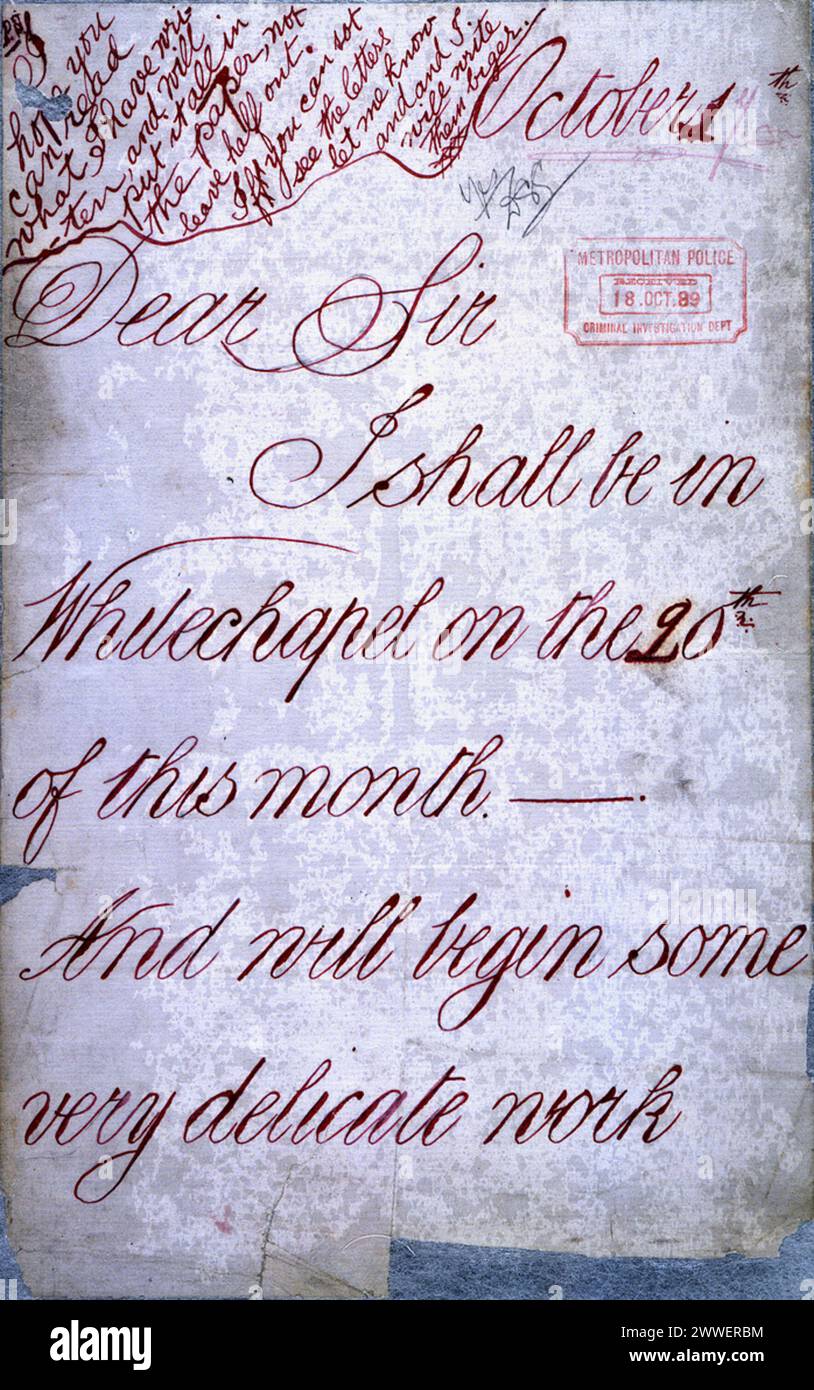 I
hope you
can read
what I have wri
ten, and will
put it all in
the paper, not
leave half out.
If you can sot
see the letters
let me know
and and I.
will write
them biger..
October 1 th
Dear Sir
METROPOLITAN POLICE
RECEIVED
18.OCT.89
CRIMINAL INVESTIGATION DEPT
I shall be in
Whitechapel on the 20th
of this month. —.
And will begin some
very delicate work
a alamy
alamy
Image ID: 2WWERBM
www.alamy.com